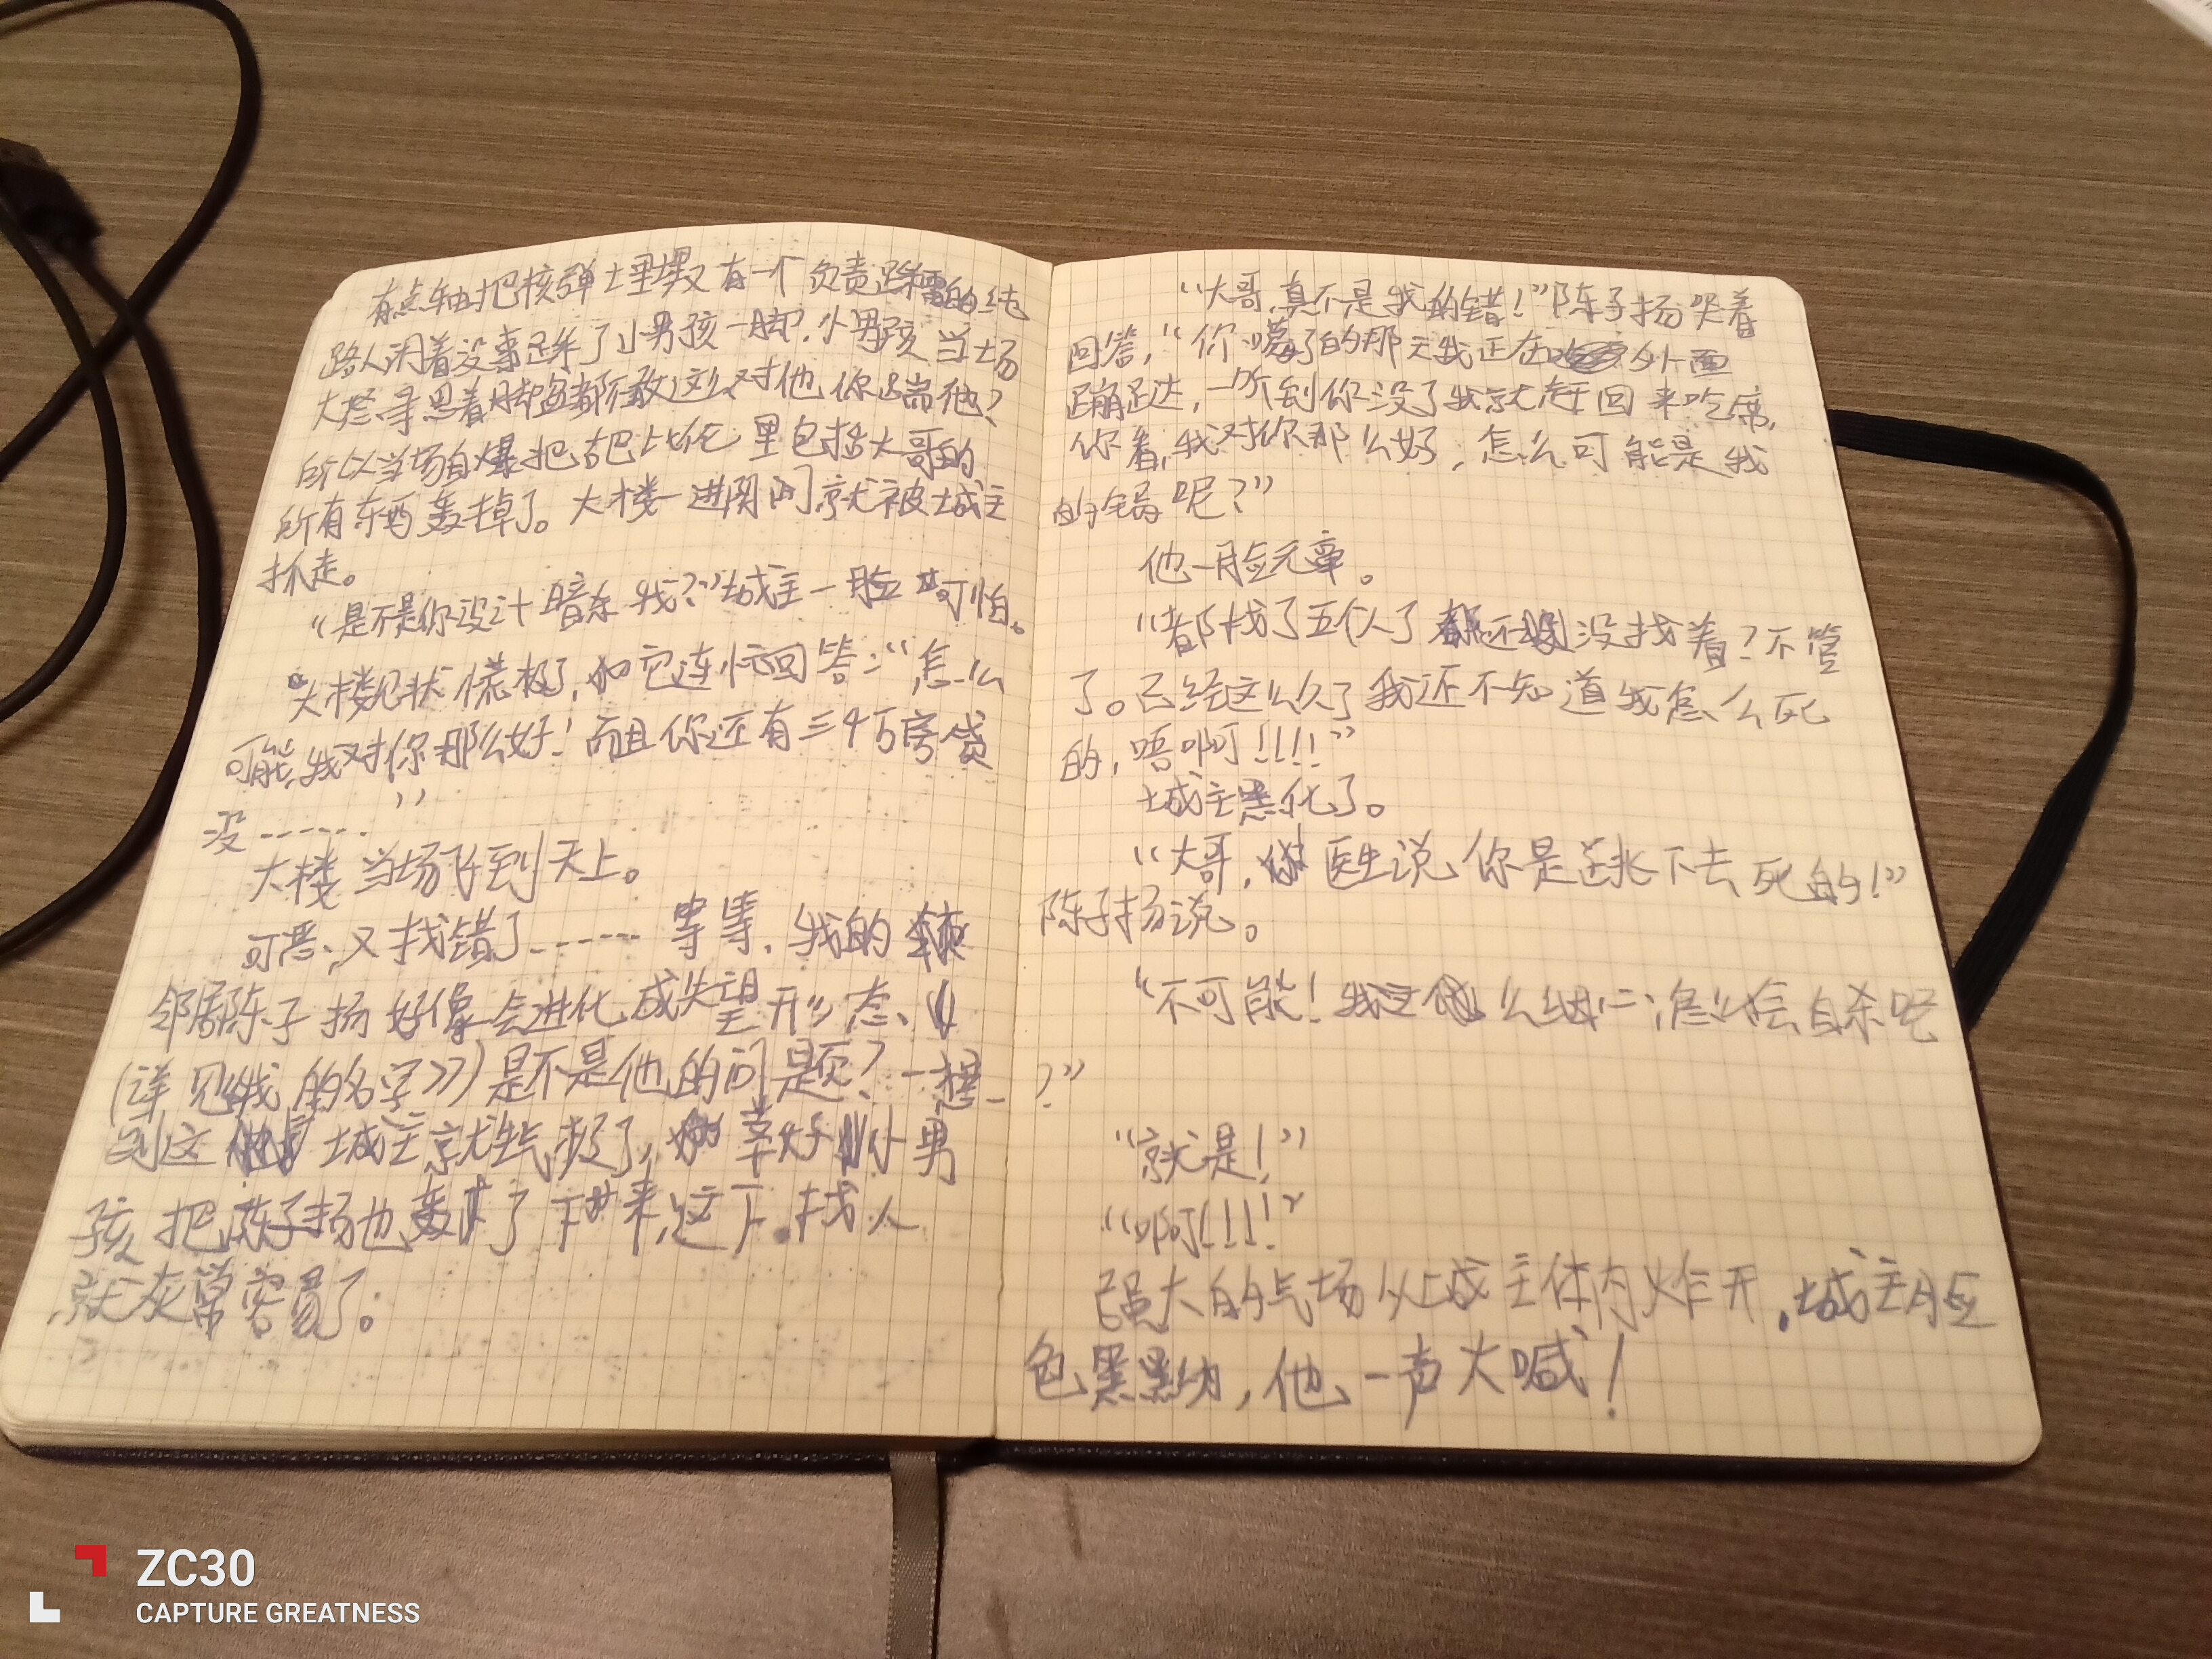 有点轴把核弹土里埋又有一个负责踩雷的纯
路人闲着没事踩了小男孩一脚，小男孩当场
大怒寻思着脚盆都不敢这么对他你踹他？
所以当场自爆把古巴比伦里包括大哥的
所有东西轰掉了。大楼一进阴门就被城主
抓走。
“是不是你设计暗杀我？”城主一脸可怕。
大楼见状慌极了，它连忙回答：“怎么
可能，我对你那么好！而且你还有三千万房贷
没……”
大楼当场飞到天上。
可恶，又找错了……等等，我的
邻居陈子扬好像会进化成失望形态
（详见《我的名字》）是不是他的问题？一想
到这城主就生气极了，幸好小男
孩把陈子扬也轰了下来，这下找人
就灰常容易了。
“大哥，真不是我的错！”陈子扬哭着
回答，“你嘎了的那天我正在外面
蹦跶，一听到你没了我就赶回来吃席，
你看，我对你那么好，怎么可能是我
的锅呢？”
他一脸无辜。
“都找了五个人了还没找着？不管
了。已经这么久了我还不知道我怎么死
的，唔啊！！！！”
城主黑化了。
“大哥，医生说你是跳下去死的！”
陈子扬说。
“不可能！我这么怎么会自杀呢
？”
“就是！”
“啊！！！！”
强大的气场从城主体内炸开，城主脸
色黑黑的，他一声大喊！
ZC30
CAPTURE GREATNESS